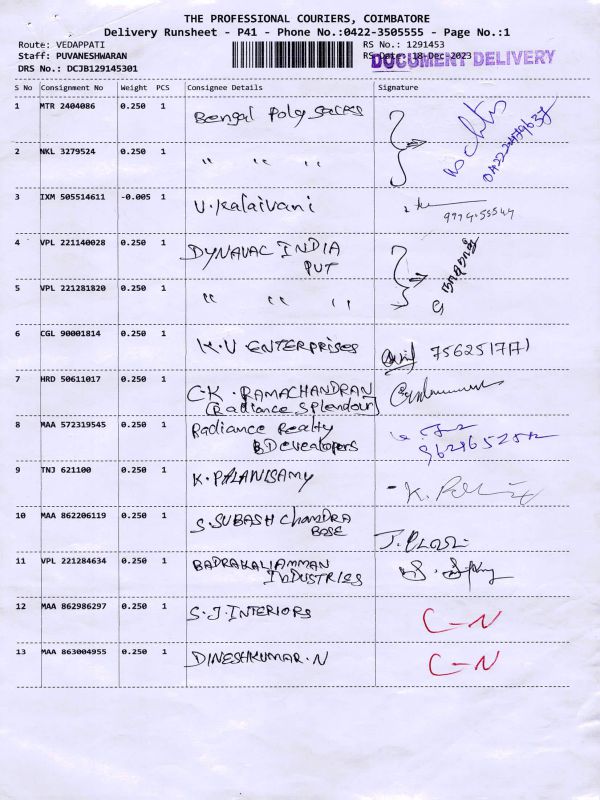 THE PROFESSIONAL COURIERS, COIMBATORE
Delivery Runsheet - P41 - Phone No.:0422-3505555 - Page No.:1
Route: VEDAPPATI
RS No.: 1291453
Staff: PUVANESHWARAN
RS Date: 18-Dec-2023
DOCUMENT DELIVERY
DRS No.: DCJB129145301
S No Consignment No Weight PCS Consignee Details Signature
1 MTR 2404086 0.250 1 Bengal Poly Sacks
2 NKL 3279524 0.250 1 " " "
3 IXM 505514611 -0.005 1 V. Kalaivani
4 VPL 221140028 0.250 1 DYNAVAC INDIA
PVT
5 VPL 221281820 0.250 1 " " "
6 CGL 90001814 0.250 1 K.V ENTERPRISES
7 HRD 50611017 0.250 1 C.K. RAMACHANDRAN
(Radiance Splendour)
8 MAA 572319545 0.250 1 Radiance Realty
Developers
9 TNJ 621100 0.250 1 K. PALANISAMY
10 MAA 862206119 0.250 1 S. SUBASH ChANDRA
BOSE
11 VPL 221284634 0.250 1 BADRAKALIAMMAN
INDUSTRIES
12 MAA 862986297 0.250 1 S.J. INTERIORS C-N
13 MAA 863004955 0.250 1 DINESHKUMAR.N C-N